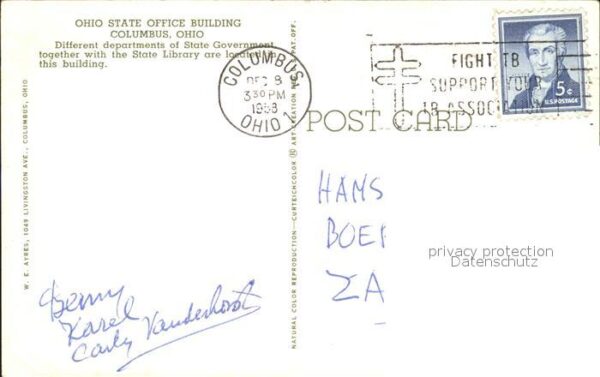 OHIO STATE OFFICE BUILDING
COLUMBUS, OHIO
Different departments of State Government
together with the State Library are located in
this building.
W. E. AYRES, 1049 LIVINGSTON AVE., COLUMBUS, OHIO
NATURAL COLOR REPRODUCTION — CURTEICHCOLOR ® ART-CREATION
PAY-OFF.
COLUMBUS
DEC 8
3 30 PM
OHIO 1
FIGHT TB
SUPPORT YOUR
TB ASSOCIATION
5¢
U.S. POSTAGE
POST CARD
HANS
BOEI
ZA
privacy protection
Datenschutz
Karel
Carly Vanderhorst